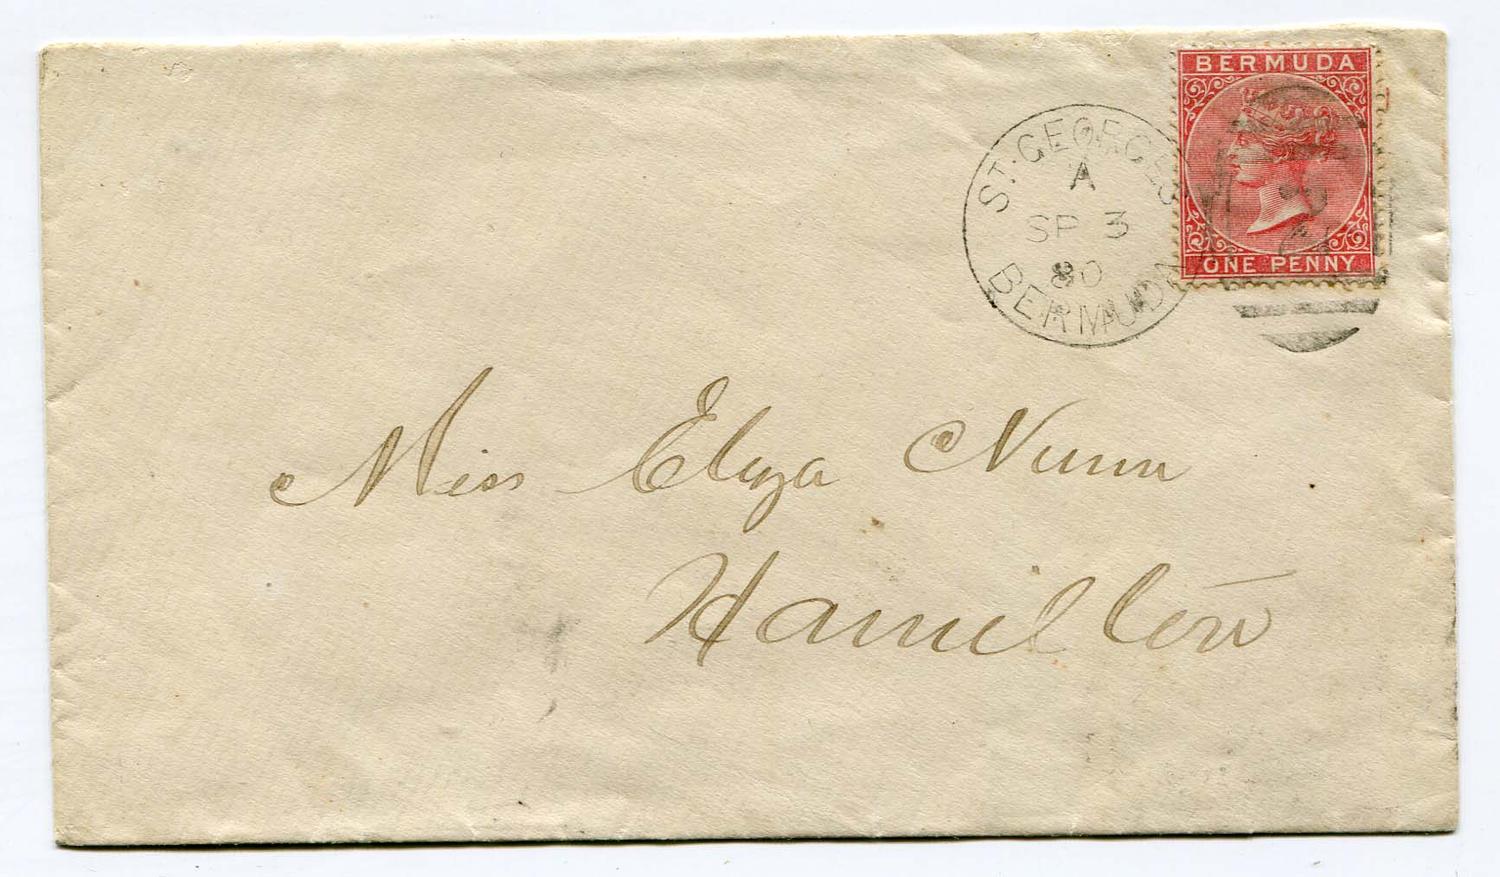 BERMUDA
ONE PENNY
ST. GEORGES
A
SP 3
80
BERMUDA
Miss Eliza Nunn
Hamilton